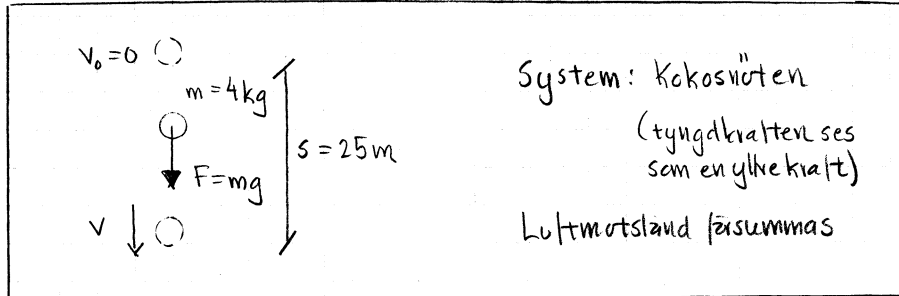 V₀=0
m=4kg
s=25m
F=mg
V
System: Kokosnöten
(tyngdkraften ses
som en yttre kraft)
Luftmotstånd försummas